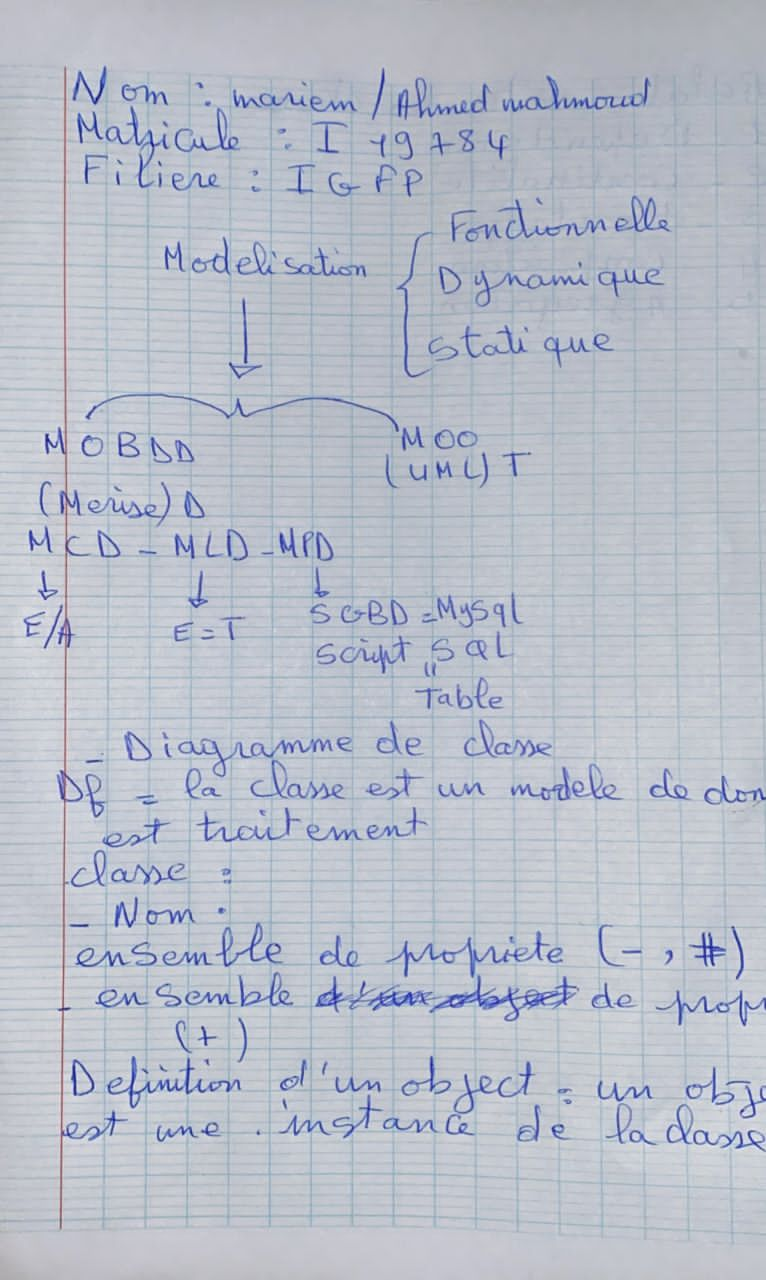 Nom : mariem / Ahmed mahmoud
Matricule : I 19784
Filiere : IGFP
Fonctionnelle
Modelisation
Dynamique
Statique
MOBDD
MOO
(UML) T
(Merise) D
MCD - MLD - MPD
E/A
E=T
SGBD = MySql
Script SQL
"
Table
- Diagramme de classe
Df = la classe est un modele de don
est traitement
classe :
- Nom .
ensemble de propriete (-, #)
- ensemble de prop
(+)
Definition d'un object : un obje
est une . instance de la classe